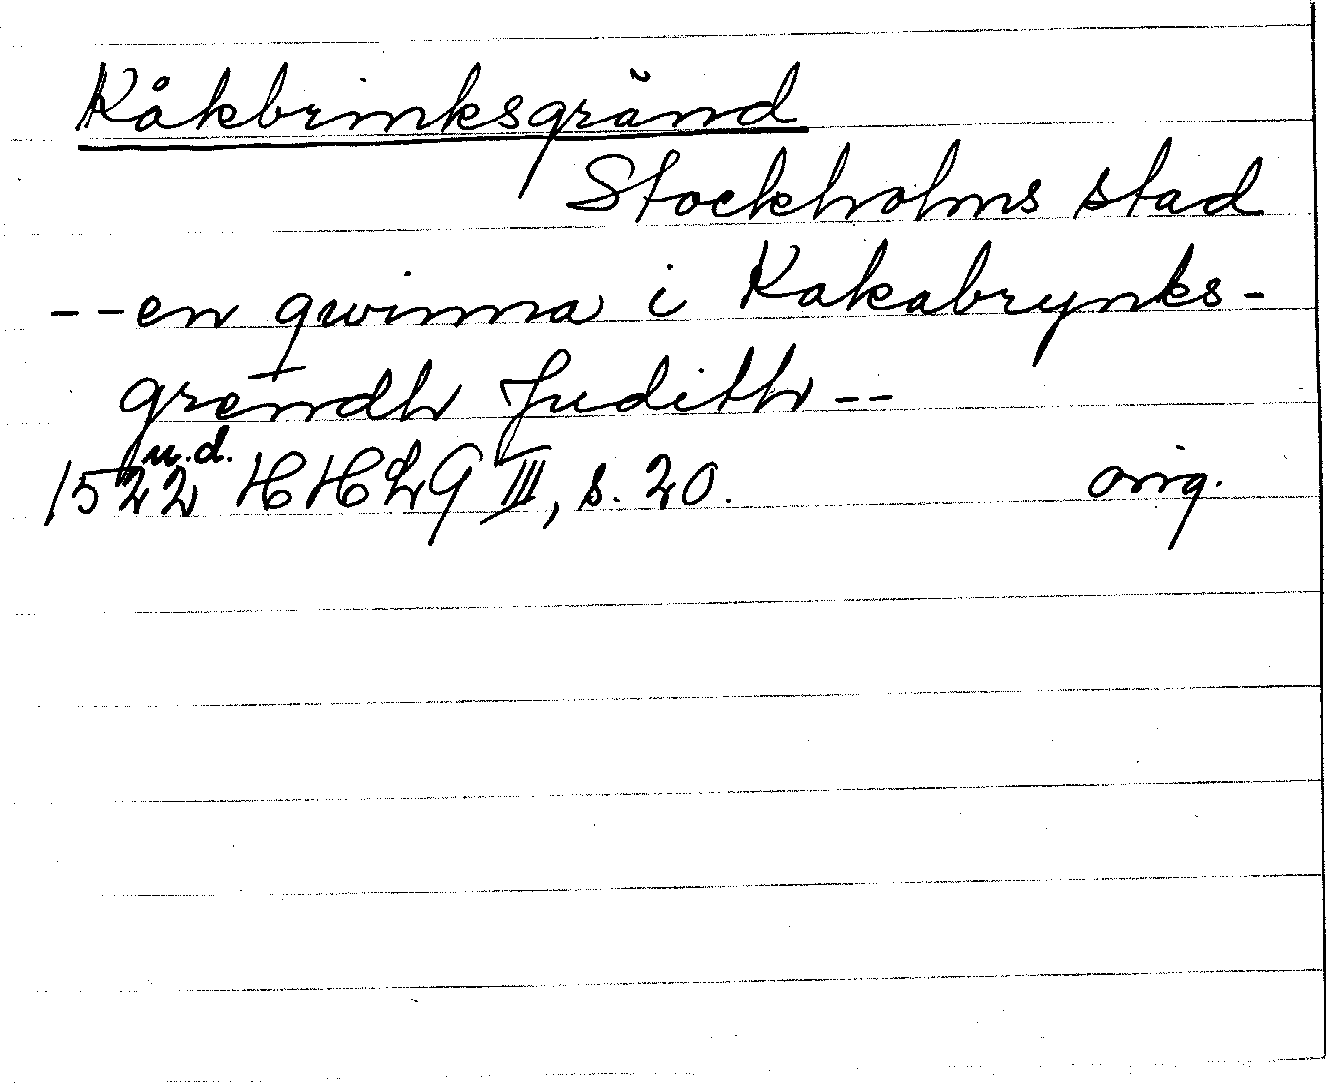 Kåkbrinksgränd
Stockholms stad
--en qwinna i Kakabrynks-
grendh Judith --
u.d.
1522 HHLG III, s. 20. orig.